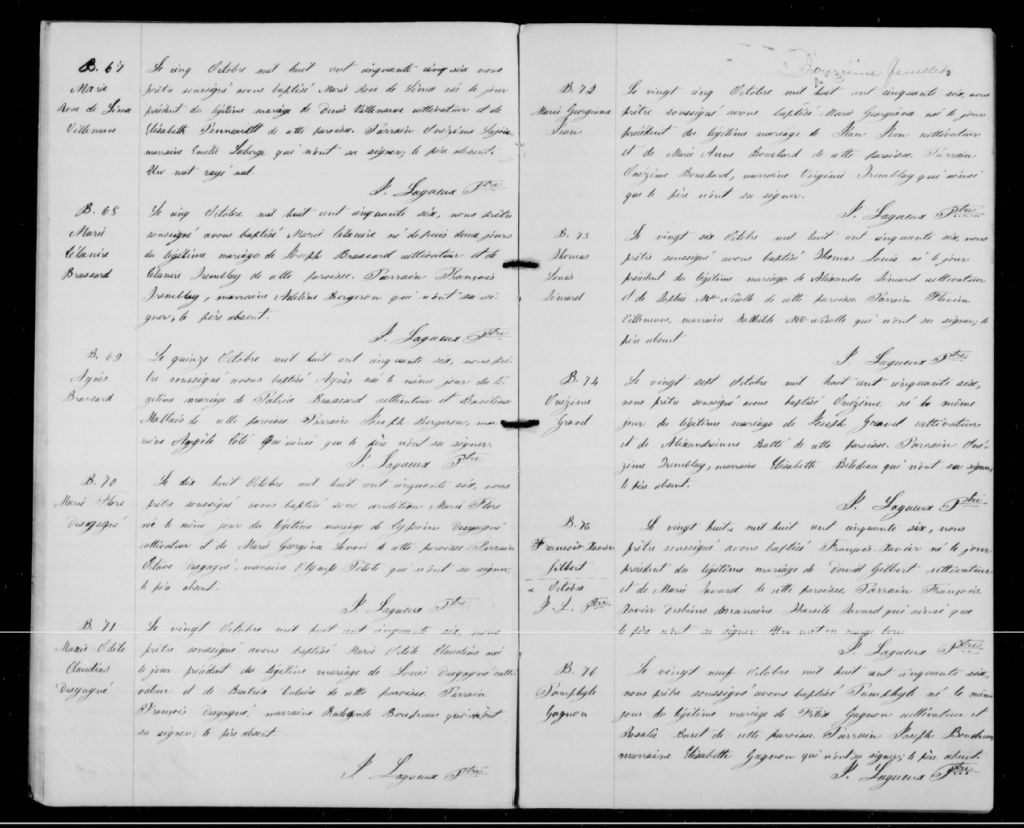 B. 67
Marie
Rose de Lima
Villeneuve
Le cinq Octobre mil huit cent cinquante cinq six nous
prêtre soussigné avons baptisé Marie Rose de Lima né le jour
précédent du légitime mariage de Denis Villeneuve cultivateur et de
Elisabeth de cette paroisse. Parrain Onézime
marraine Emélie Laberge qui n'ont su signer; le père absent.
Un mot rayé nul.
J. Lagueux Ptre
B. 68
Marie
Célanire
Brassard
Le cinq Octobre mil huit cent cinquante six, nous prêtre
soussigné avons baptisé Marie Célanire né depuis deux jours
du légitime mariage de Joseph Brassard cultivateur et de
Célanire Tremblay de cette paroisse. Parrain François
Tremblay, marraine Adeline Bergeron qui n'ont su si-
gner; le père absent.
J. Lagueux Ptre
B. 69
Agnès
Brassard
Le quinze Octobre mil huit cent cinquante six, nous prê-
tre soussigné avons baptisé Agnès né le même jour du lé-
gitime mariage de Patrice Brassard cultivateur et Basilisse
Maltais de cette paroisse Parrain Joseph Bergeron, ma-
rraine Angèle Coté Qui ainsi que le père n'ont su signer.
J. Lagueux Ptre
B. 70
Marie Flore
Desgagné
Le dix huit Octobre mil huit cent cinquante six, nous
prêtre soussigné avons baptisé sous condition Marie Flore
né le même jour du légitime mariage de Cyprien Desgagné
cultivateur et de Marie Georgina Savoie de cette paroisse Parrain
Octave Desgagné, marraine Olympe Pilote qui n'ont su signer
le père absent.
J. Lagueux Ptre
B. 71
Marie Odile
Claudias
Desgagné
Le vingt Octobre mil huit cent cinquante six, nous
prêtre soussigné avons baptisé Marie Odile Claudias né
le jour précédent du légitime mariage de Louis Desgagné culti-
vateur et de de cette paroisse. Parrain
François Desgagné, marraine Radegonde Boudreau qui n'ont
su signer; le père absent.
J. Lagueux Ptre
Douzième feuillet
B. 72
Marie Georgiana
Jean
Le vingt cinq Octobre mil huit cent cinquante six, nous
prêtre soussigné avons baptisé Marie Georgiana né le jour
précédent du légitime mariage de Jean Jean cultivateur
et de Marie Anne Bouchard de cette paroisse. Parrain
Onézime Bouchard, marraine Virginie Tremblay qui ainsi
que le père n'ont su signer.
J. Lagueux Ptre
B. 73
Thomas
Louis
Simard
Le vingt six Octobre mil huit cent cinquante six, nous
prêtre soussigné avons baptisé Thomas Louis né le jour
précédent du légitime mariage de Alexandre Simard cultivateur
et de Sophie McNicolle de cette paroisse Parrain Flavien
Villeneuve, marraine Mathilde McNicolle qui n'ont su signer; le
père absent
J. Lagueux Ptre
B. 74
Onézime
Girard
Le vingt sept Octobre mil huit cent cinquante six,
nous prêtre soussigné avons baptisé Onézime né le même
jour du légitime mariage de Joseph Girard cultivateur
et de Alexandrienne de cette paroisse. Parrain Oné-
zime Tremblay, marraine Elisabeth Bilodeau qui n'ont su signer,
le père absent.
J. Lagueux Ptre
B. 75
François Xavier
Gilbert
x Octobre
J. L. Ptre
Le vingt huit x mil huit cent cinquante six, nous
prêtre soussigné avons baptisé François-Xavier né le jour
précédent du légitime mariage de David Gilbert cultivateur
et de Marie Savard de cette paroisse. Parrain François
Xavier Desbiens marraine Savard qui ainsi que
le père n'ont su signer Un mot en marge bon
J. Lagueux Ptre
B. 76
Pamphyle
Gagnon
Le vingt neuf Octobre mil huit cent cinquante six,
nous prêtre soussigné avons baptisé Pamphyle né le même
jour du légitime mariage de Félix Gagnon cultivateur et
Rosalie de cette paroisse Parrain Joseph Boudreau
marraine Elisabeth Gagnon qui n'ont su signer; le père absent.
J. Lagueux Ptre